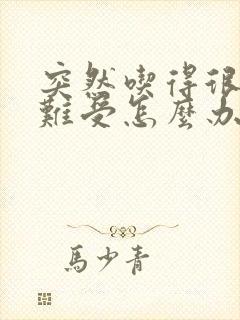 突然喫得很
難受怎麼办
馬少青